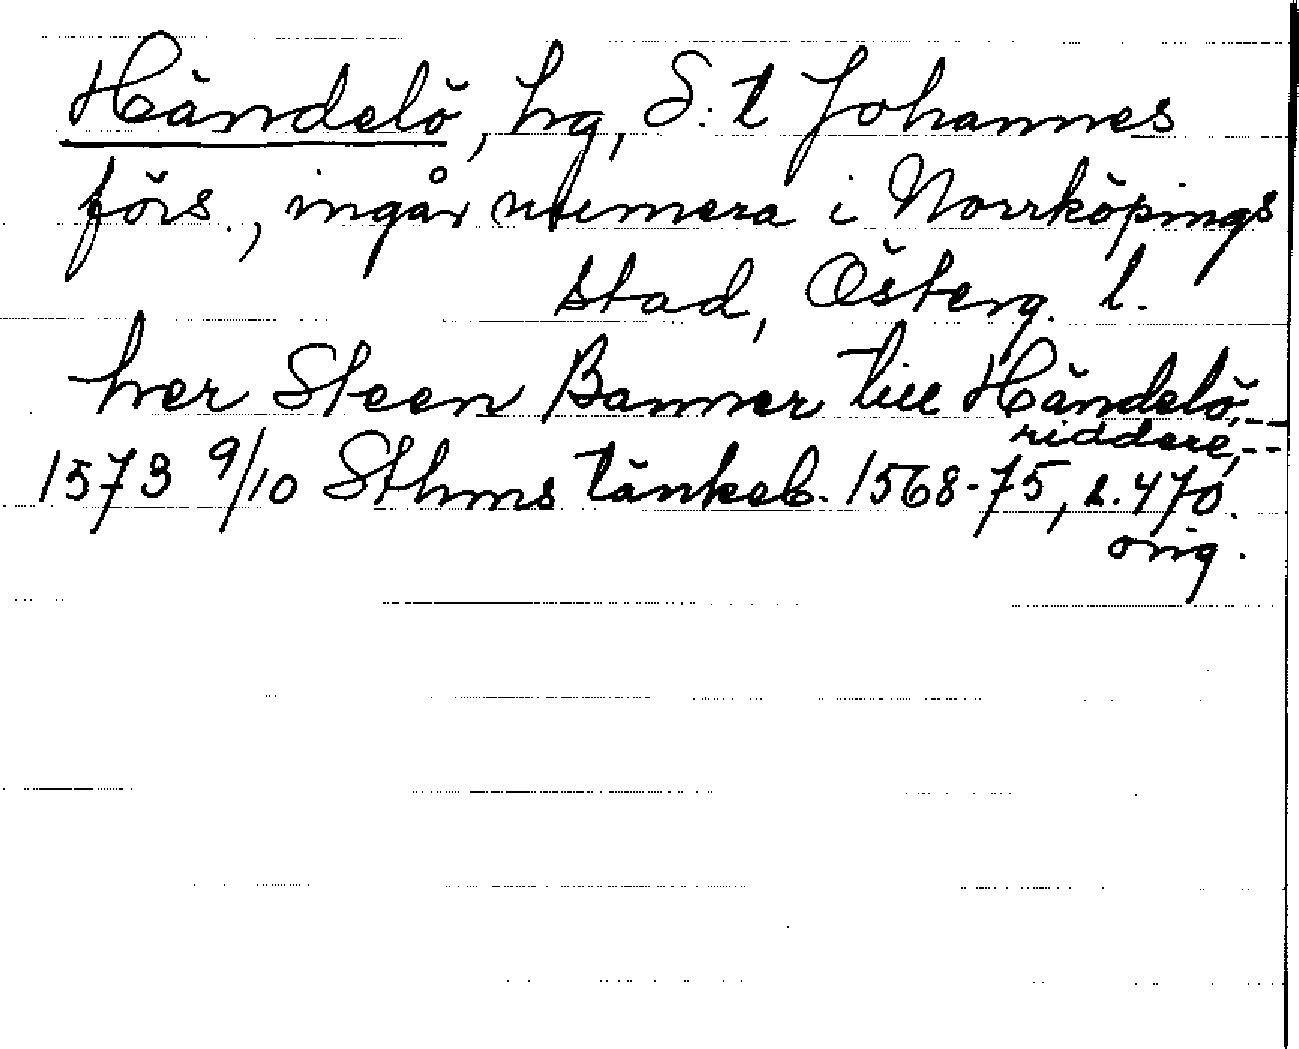 Händelö, hg, S:t Johannes
förs., ingår numera i Norrköpings
stad, Österg. l.
her Steen Banner till Händelö,--
riddere,--
1573 9/10 Sthms tänkeb. 1568-75, s. 470.
orig.